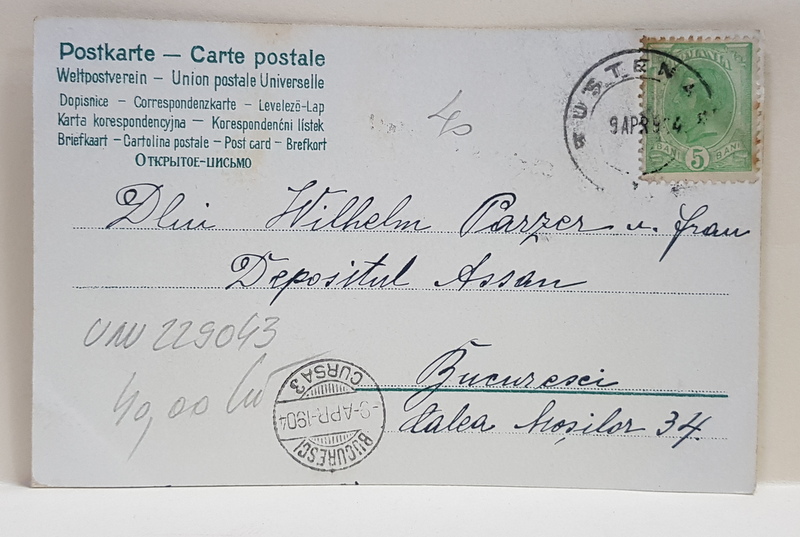 Postkarte – Carte postale
Weltpostverein – Union postale Universelle
Dopisnice – Correspondenzkarte – Levelező-Lap
Karta korespondencyjna – Korespondenční lístek
Briefkaart – Cartolina postale – Post card – Brefkort
Открытое-цисьмо
40
BUSTENI
9 APR 9 4
BANI 5 BANI
Dlui Wilhelm Parzer u. frau
Depositul Assan
UNV 229043
40,00
Bucuresci
Calea Moșilor 34
CURSA 3
-9-APR-1904
BUCURESCI